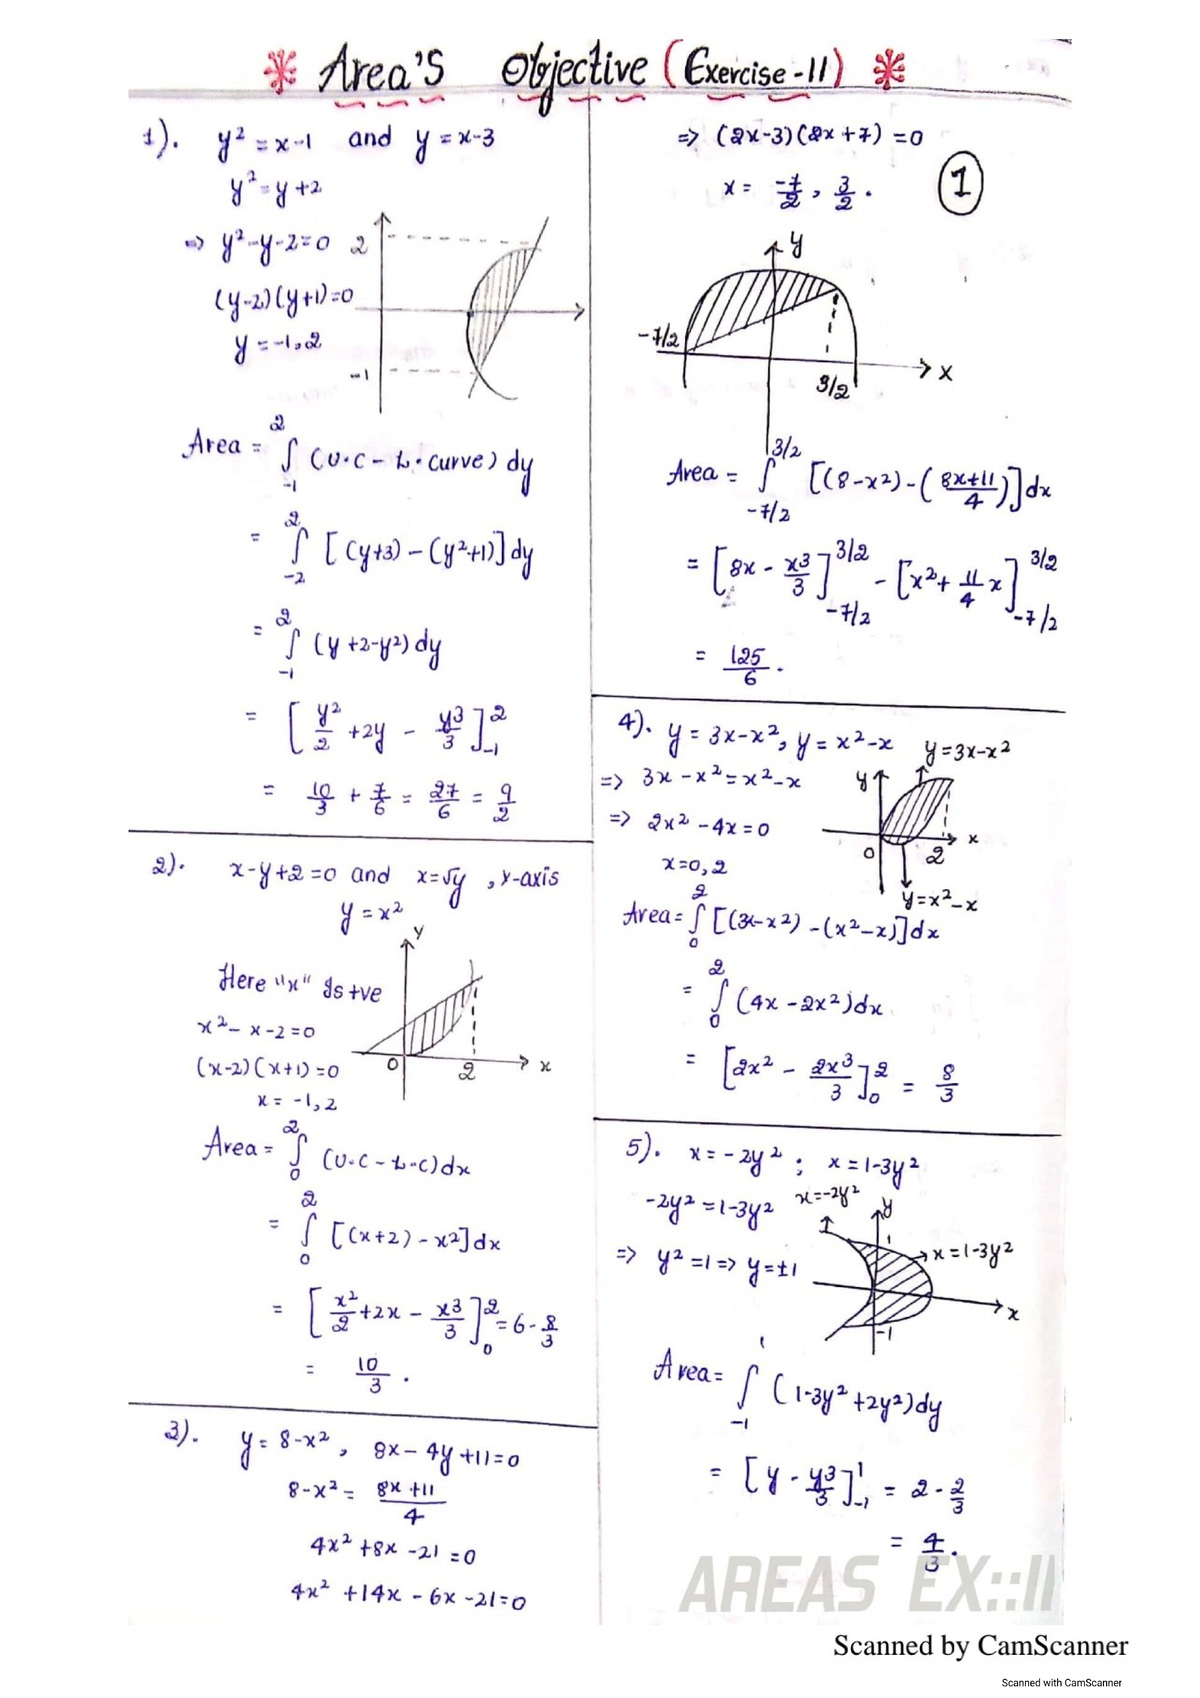 * Area's Objective (Exercise-11) *
1). y² = x-1 and y = x-3
y² = y+2
=> y²-y-2=0
(y-2)(y+1)=0
y = -1, 2
2
-1
Area = ∫₋₁² (U.C - L.curve) dy
= ∫₋₂² [(y+3) - (y²+1)] dy
= ∫₋₁² (y+2-y²) dy
= [y²/2 + 2y - y³/3]₋₁²
= 10/3 + 7/6 = 27/6 = 9/2
2). x-y+2=0 and x=√y, y-axis
y = x²
Here "x" Is +ve
x²-x-2=0
(x-2)(x+1)=0
x = -1, 2
y
0 2 x
Area = ∫₀² (U.C - L.C) dx
= ∫₀² [(x+2) - x²] dx
= [x²/2 + 2x - x³/3]₀² = 6 - 8/3
= 10/3.
3). y = 8-x², 8x-4y+11=0
8-x² = (8x+11)/4
4x²+8x-21=0
4x²+14x-6x-21=0
=> (2x-3)(2x+7)=0
x = -7/2, 3/2.
1
y
-7/2
3/2
x
Area = ∫₋₇/₂^3/2 [(8-x²) - ((8x+11)/4)] dx
= [8x - x³/3]₋₇/₂^3/2 - [x² + 11/4 x]₋₇/₂^3/2
= 125/6.
4). y = 3x-x², y = x²-x
=> 3x-x² = x²-x
=> 2x²-4x=0
x=0, 2
y=3x-x²
y
x
0 2
y=x²-x
Area = ∫₀² [(3x-x²) - (x²-x)] dx
= ∫₀² (4x-2x²) dx
= [2x² - 2x³/3]₀² = 8/3
5). x = -2y² ; x = 1-3y²
-2y² = 1-3y²
=> y²=1 => y=±1
x=-2y²
y
1
x=1-3y²
x
-1
Area = ∫₋₁¹ (1-3y²+2y²) dy
= [y - y³/3]₋₁¹ = 2 - 2/3
= 4/3.
AREAS EX::II
Scanned by CamScanner
Scanned with CamScanner